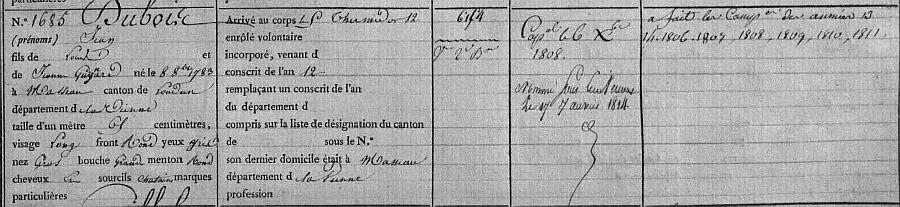 N.º 1685 Dubois
(prénoms) Jean
fils de Louis et
de Jeanne né le 8 8bre 1783
à Masseau canton de Loudun
département d la Vienne
taille d'un mètre 61 centimètres,
visage Long front Rond yeux Gris
nez Gros bouche Grand menton Rond
cheveux sourcils Chatain marques
particulières
Arrivé au corps Le Thermidor 12
enrôlé volontaire
incorporé, venant d
conscrit de l'an 12
remplaçant un conscrit de l'an
du département d
compris sur la liste de désignation du canton
de sous le N.º
son dernier domicile était à Masseau
département d la Vienne
profession
6114
Capal 16 Xbre
1808.
Nommé Sous Lieutenant
Le 17 janvier 1814
a fait les Camp es des années 13
14. 1806. 1807. 1808. 1809. 1810. 1811.